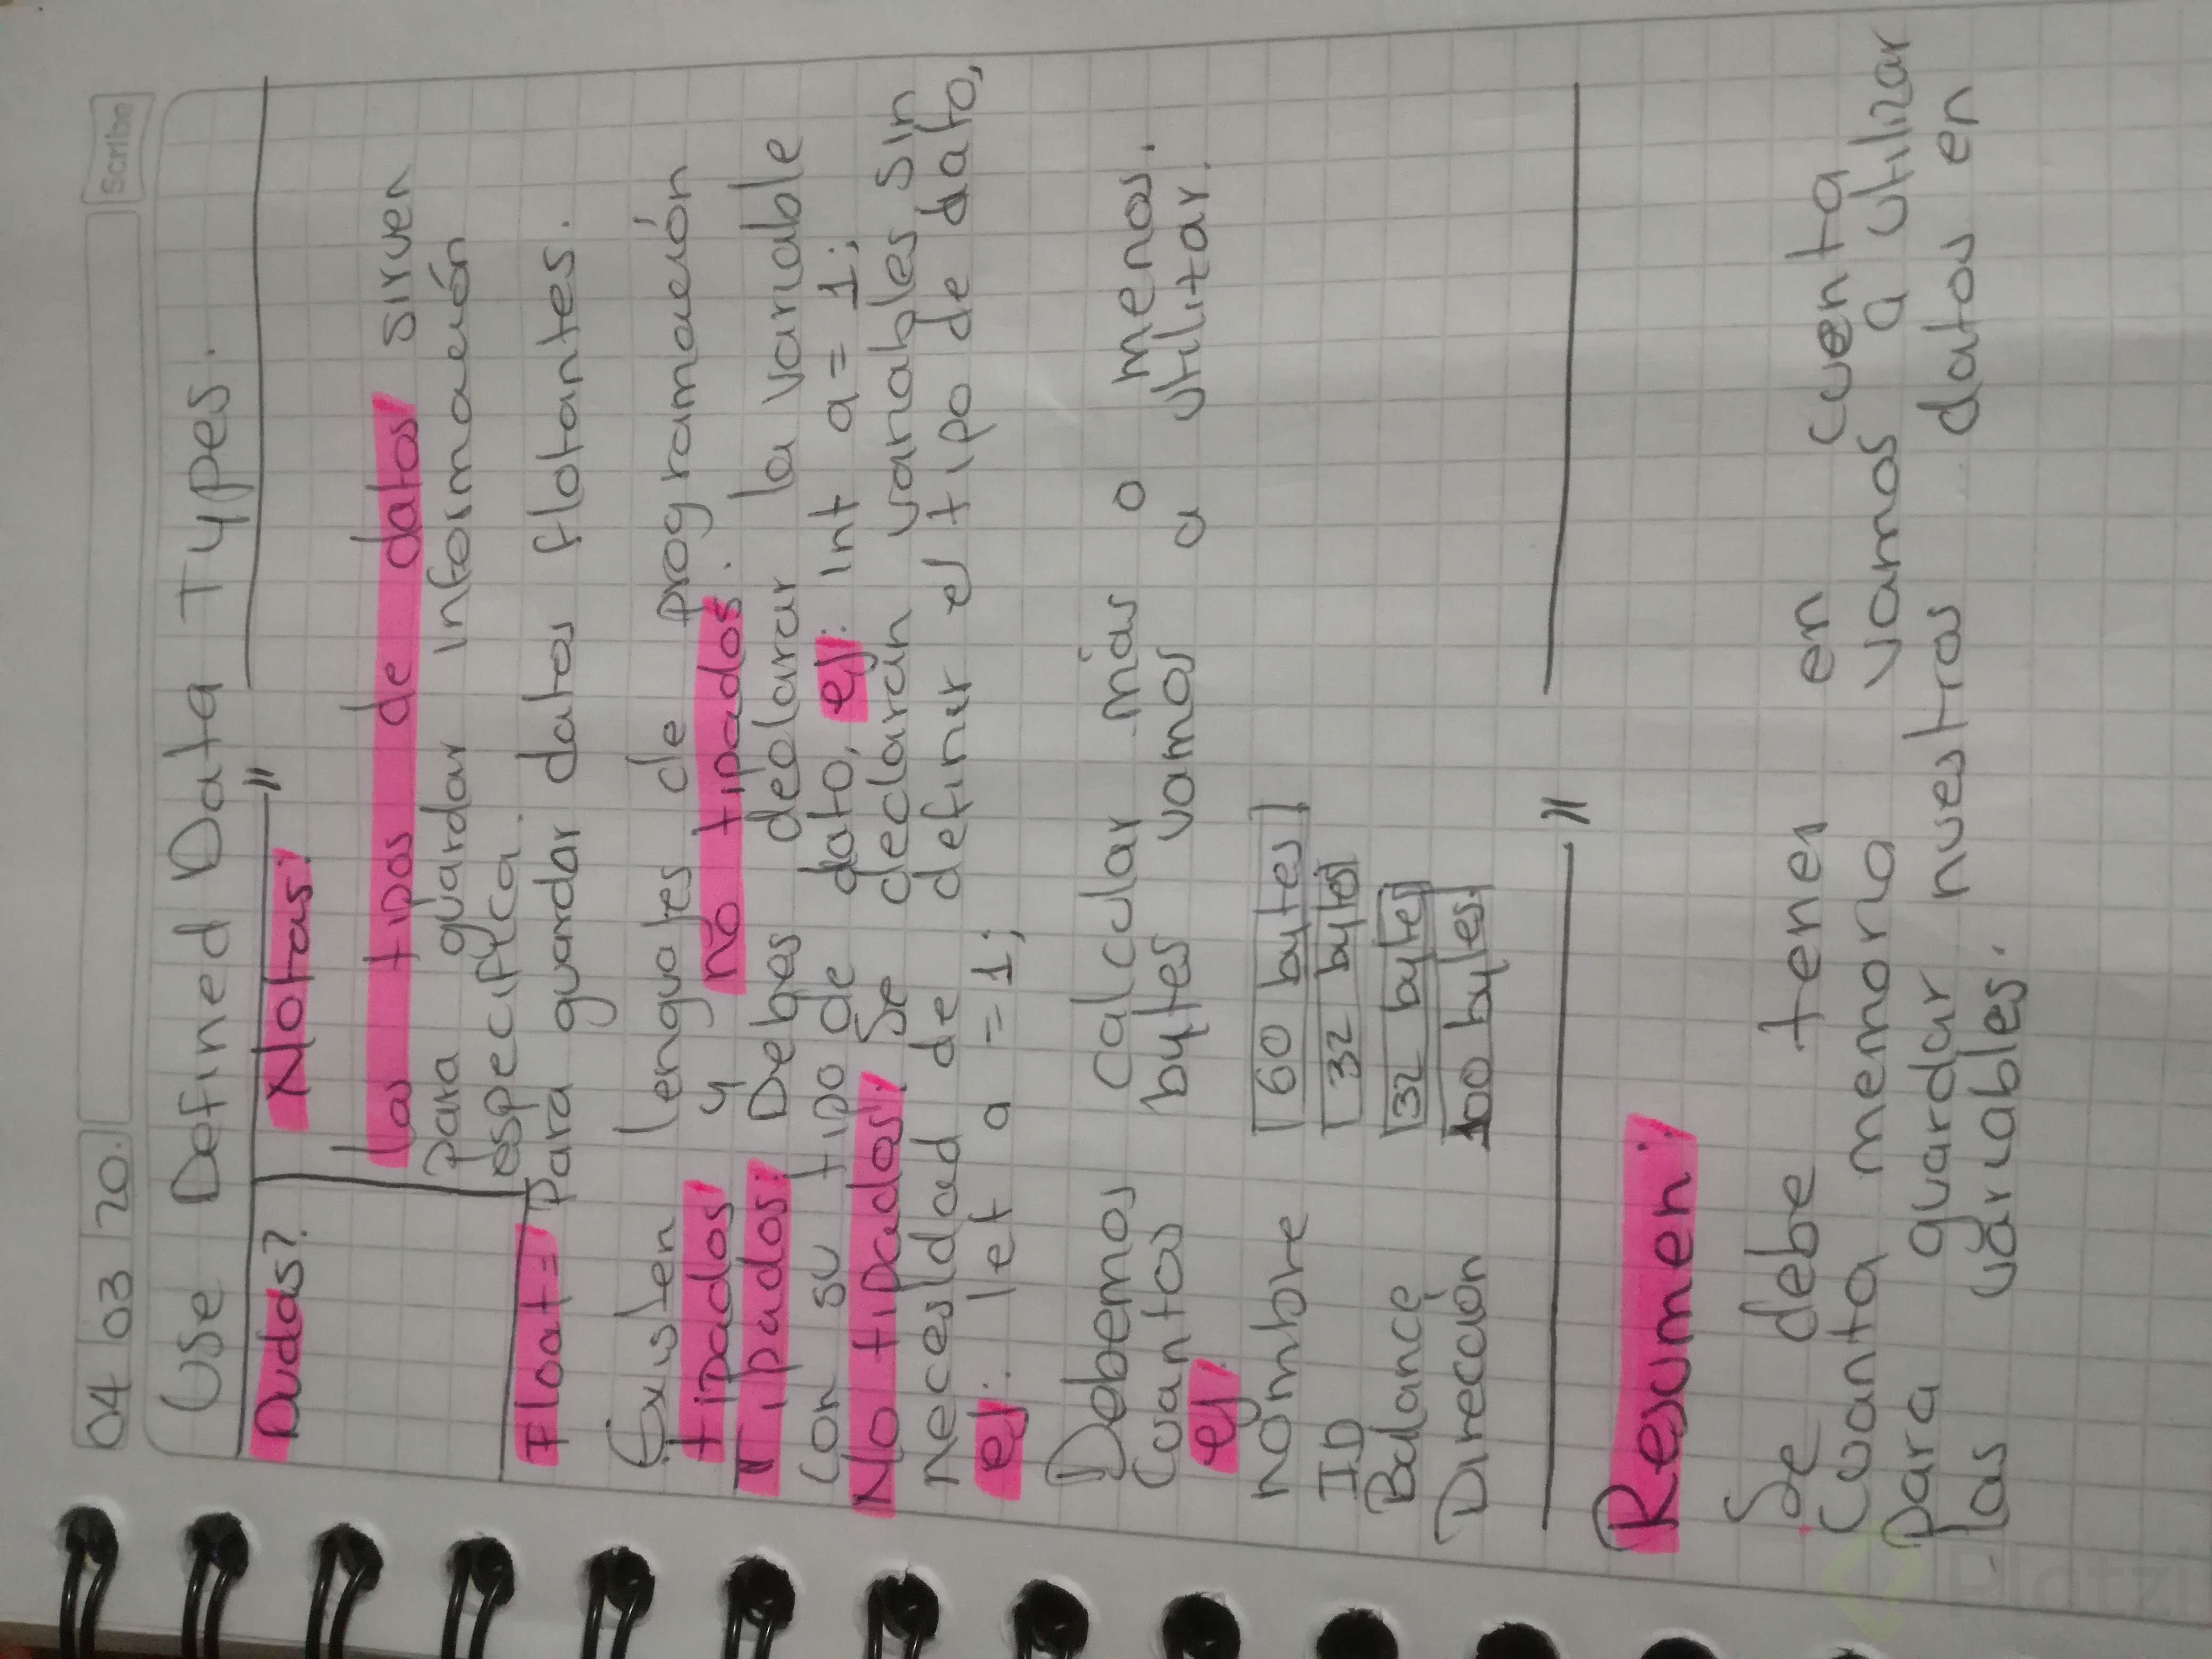 04 03 20.
Scribe
Use Defined Data Types.
Dudas? Notas:
Los tipos de datos sirven
para guardar información
especifica.
Float= Para guardar datos flotantes.
Existen lenguajes de programación
tipados y no tipados.
Tipados: Debes declarar la variable
con su tipo de dato, ej: int a = 1;
No tipados: Se declaran variables sin
necesidad de definir el tipo de dato,
ej: let a = 1;
Debemos calcular más o menos.
Cuantos bytes vamos a utilizar.
ej:
nombre 60 bytes
ID 32 bytes
Balance 32 bytes
Dirección 100 bytes.
Resumen:
Se debe tener en cuenta
Cuanta memoria vamos a utilizar
para guardar nuestros datos en
las variables.